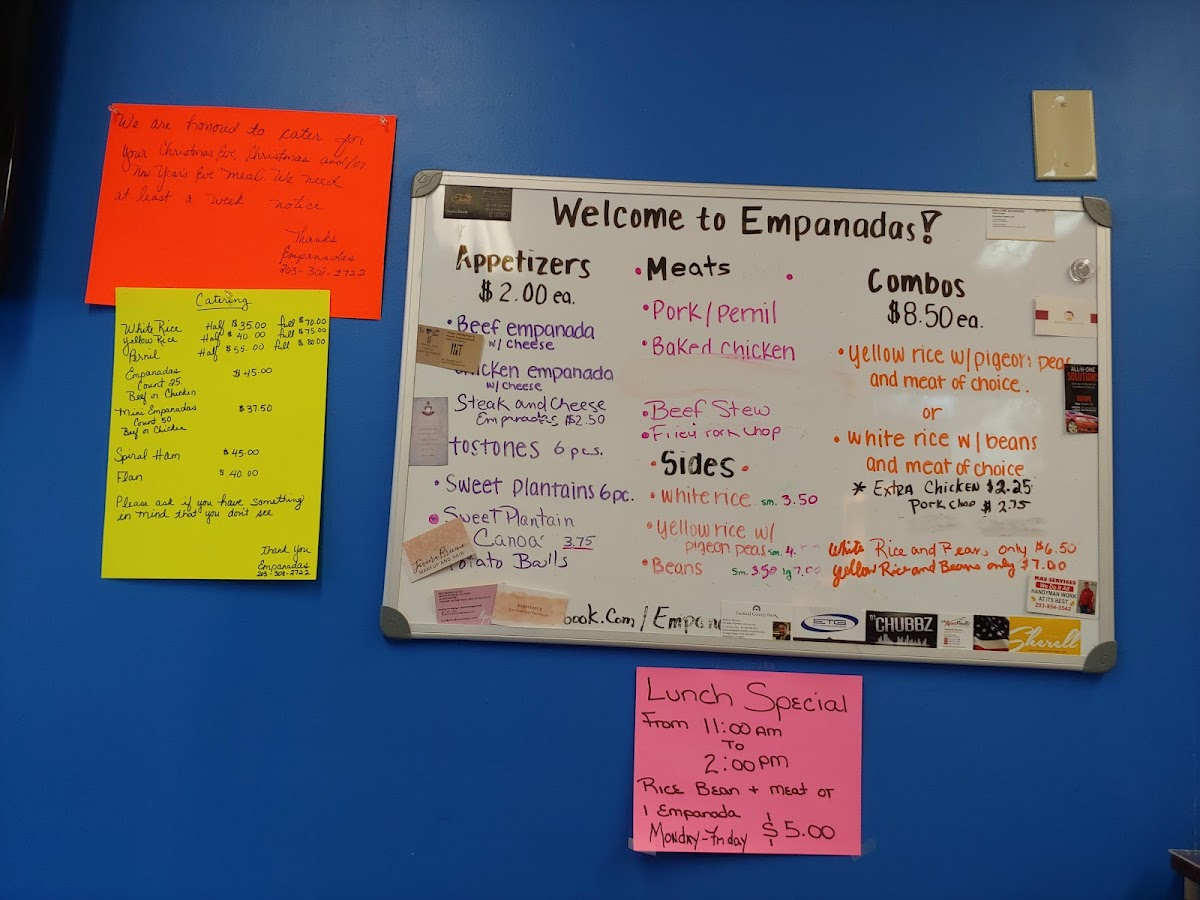 We are honored to cater for
your Christmas Eve, Christmas and/or
New Year's Eve meal. We need
at least a week notice
Thanks
Empanadas
203-308-2722
Catering
White Rice Half $35.00 full $70.00
Yellow Rice Half $40.00 full $75.00
Pernil Half $55.00 full $80.00
Empanadas $45.00
Count 25
Beef or Chicken
Mini Empanadas $37.50
Count 50
Beef or Chicken
Spiral Ham $45.00
Flan $40.00
Please ask if you have something
in mind that you don't see
Thank You
Empanadas
203-308-2722
Welcome to Empanadas!
Appetizers
$2.00 ea.
• Beef empanada
w/ cheese
chicken empanada
w/ cheese
Steak and Cheese
Empanadas $2.50
tostones 6 pcs.
• Sweet Plantains 6pc.
• Sweet Plantain
Canoa 3.75
Potato Balls
• Meats •
• Pork/Pernil
• Baked chicken
• Beef Stew
• Fried Pork Chop
• Sides •
• white rice sm. 3.50
• Yellow rice w/
pigeon peas sm. 4.
• Beans sm. 3.50 lg 7.00
Combos
$8.50 ea.
• Yellow rice w/pigeon peas
and meat of choice.
or
• white rice w/beans
and meat of choice
* Extra Chicken $2.25
Pork Chop $2.75
White Rice and Beans only $6.50
Yellow Rice and Beans only $7.00
book.Com/Empana
ALL-IN-ONE
SOLUTION
MAS SERVICES
We Do It All
HANDYMAN WORK
AT ITS BEST
203-954-5542
STG
CHUBBZ
Sherell
Lunch Special
From 11:00 AM
To
2:00 PM
Rice Bean + meat or
1 Empanada
Monday-Friday $5.00